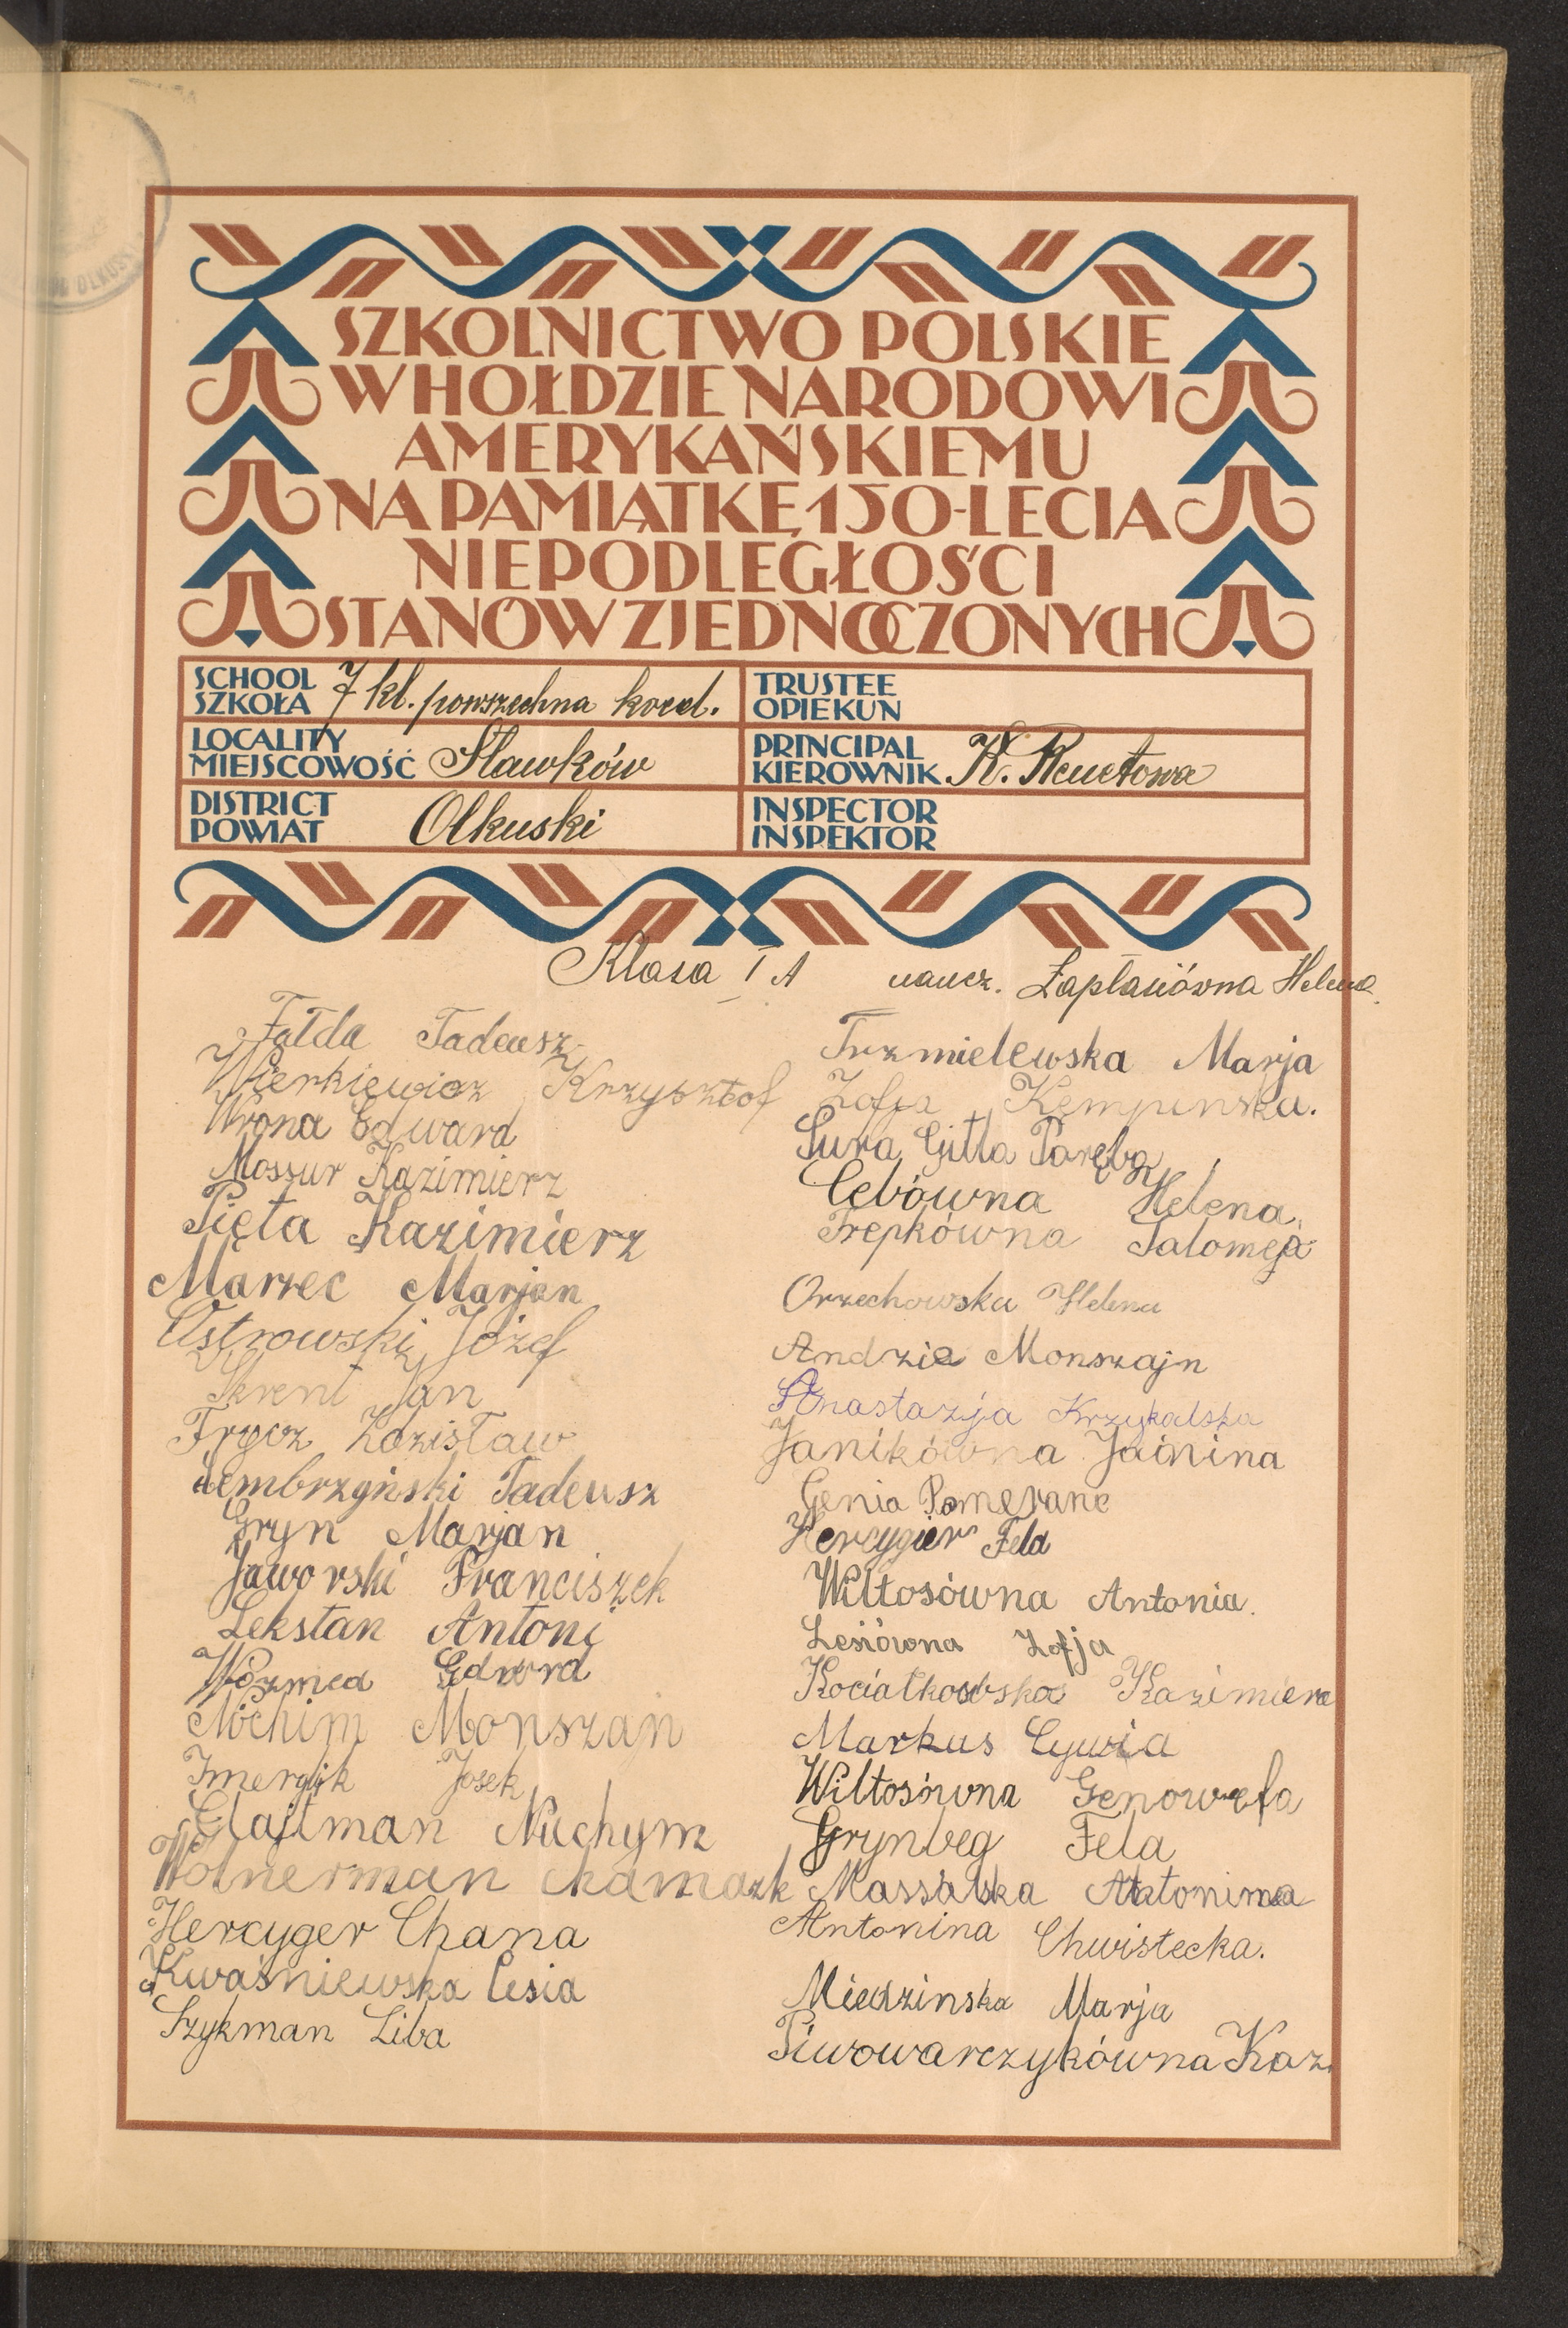 SZKOLNICTWO POLSKIE
W HOŁDZIE NARODOWI
AMERYKAŃSKIEMU
NA PAMIĄTKĘ 150-LECIA
NIEPODLEGŁOŚCI
STANÓW ZJEDNOCZONYCH
SCHOOL
SZKOŁA 7 kl. powszechna koed.
TRUSTEE
OPIEKUN
LOCALITY
MIEJSCOWOŚĆ Sławków
PRINCIPAL
KIEROWNIK K.
DISTRICT
POWIAT Olkuski
INSPECTOR
INSPEKTOR
Klasa I A naucz. Helena
Fałda Tadeusz
Wierkiewicz Krzysztof
Wrona Edward
Mossur Kazimierz
Pięta Kazimierz
Marzec Marjan
Ostrowski Józef
Skrent Jan
Frycz Zdzisław
Dembrzyński Tadeusz
Gryn Marjan
Jaworski Franciszek
Lekstan Antoni
Edward
Nochim Monszan
Imerglik Josek
Glajtman Nuchym
Wolnerman
Hercyger Chana
Kwaśniewska Cesia
Szykman Liba
Trzmielewska Marja
Zofja Kempinska.
Sura Gitla Paręba
Cebówna Helena
Trepkówna Salomeja
Orzechowska Helena
Andzia Monszajn
Anastazja Krzykalska
Janikówna Janina
Genia Pomeranc
Hercygier Fela
Wiltosówna Antonia.
Lesiówna Zofja
Kociałkowska Kazimiera
Markus Cywia
Wiltosówna Genowefa
Grynbeg Fela
Massalska Antonina
Antonina Chwistecka.
Miedzinska Marja
Piwowarczykówna Kaz.